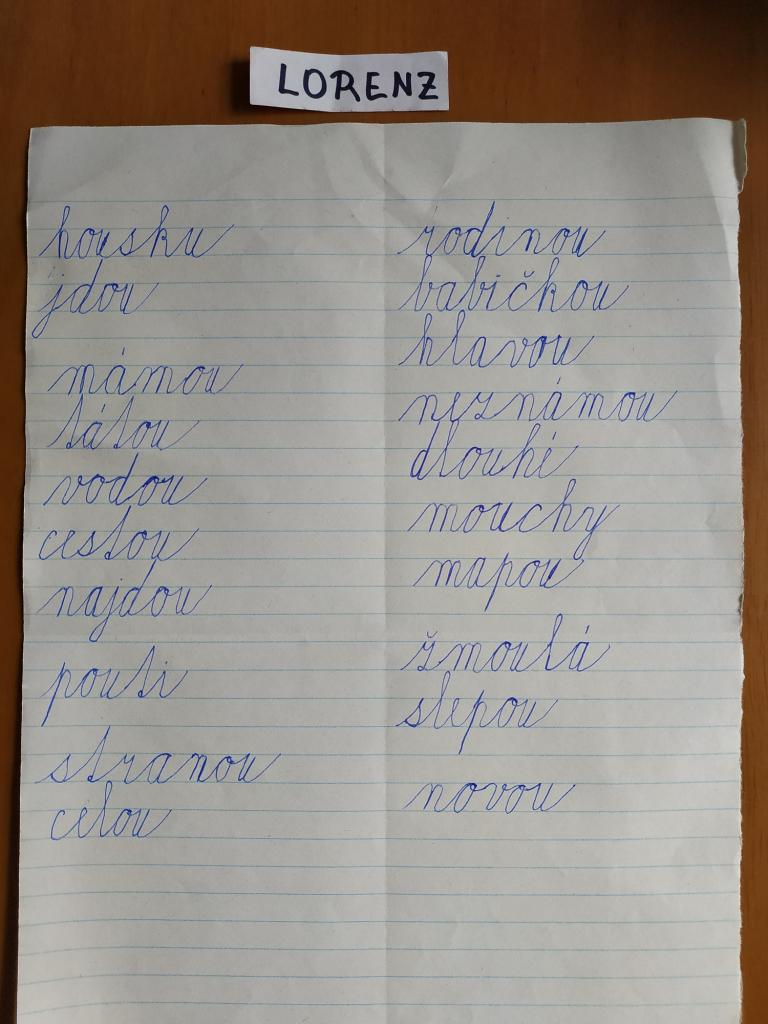 LORENZ
housku
jdou
mámou
tátou
vodou
cestou
najdou
pouti
stranou
celou
rodinou
babičkou
hlavou
neznámou
dlouhé
mouchy
mapou
žmoulá
slepou
novou